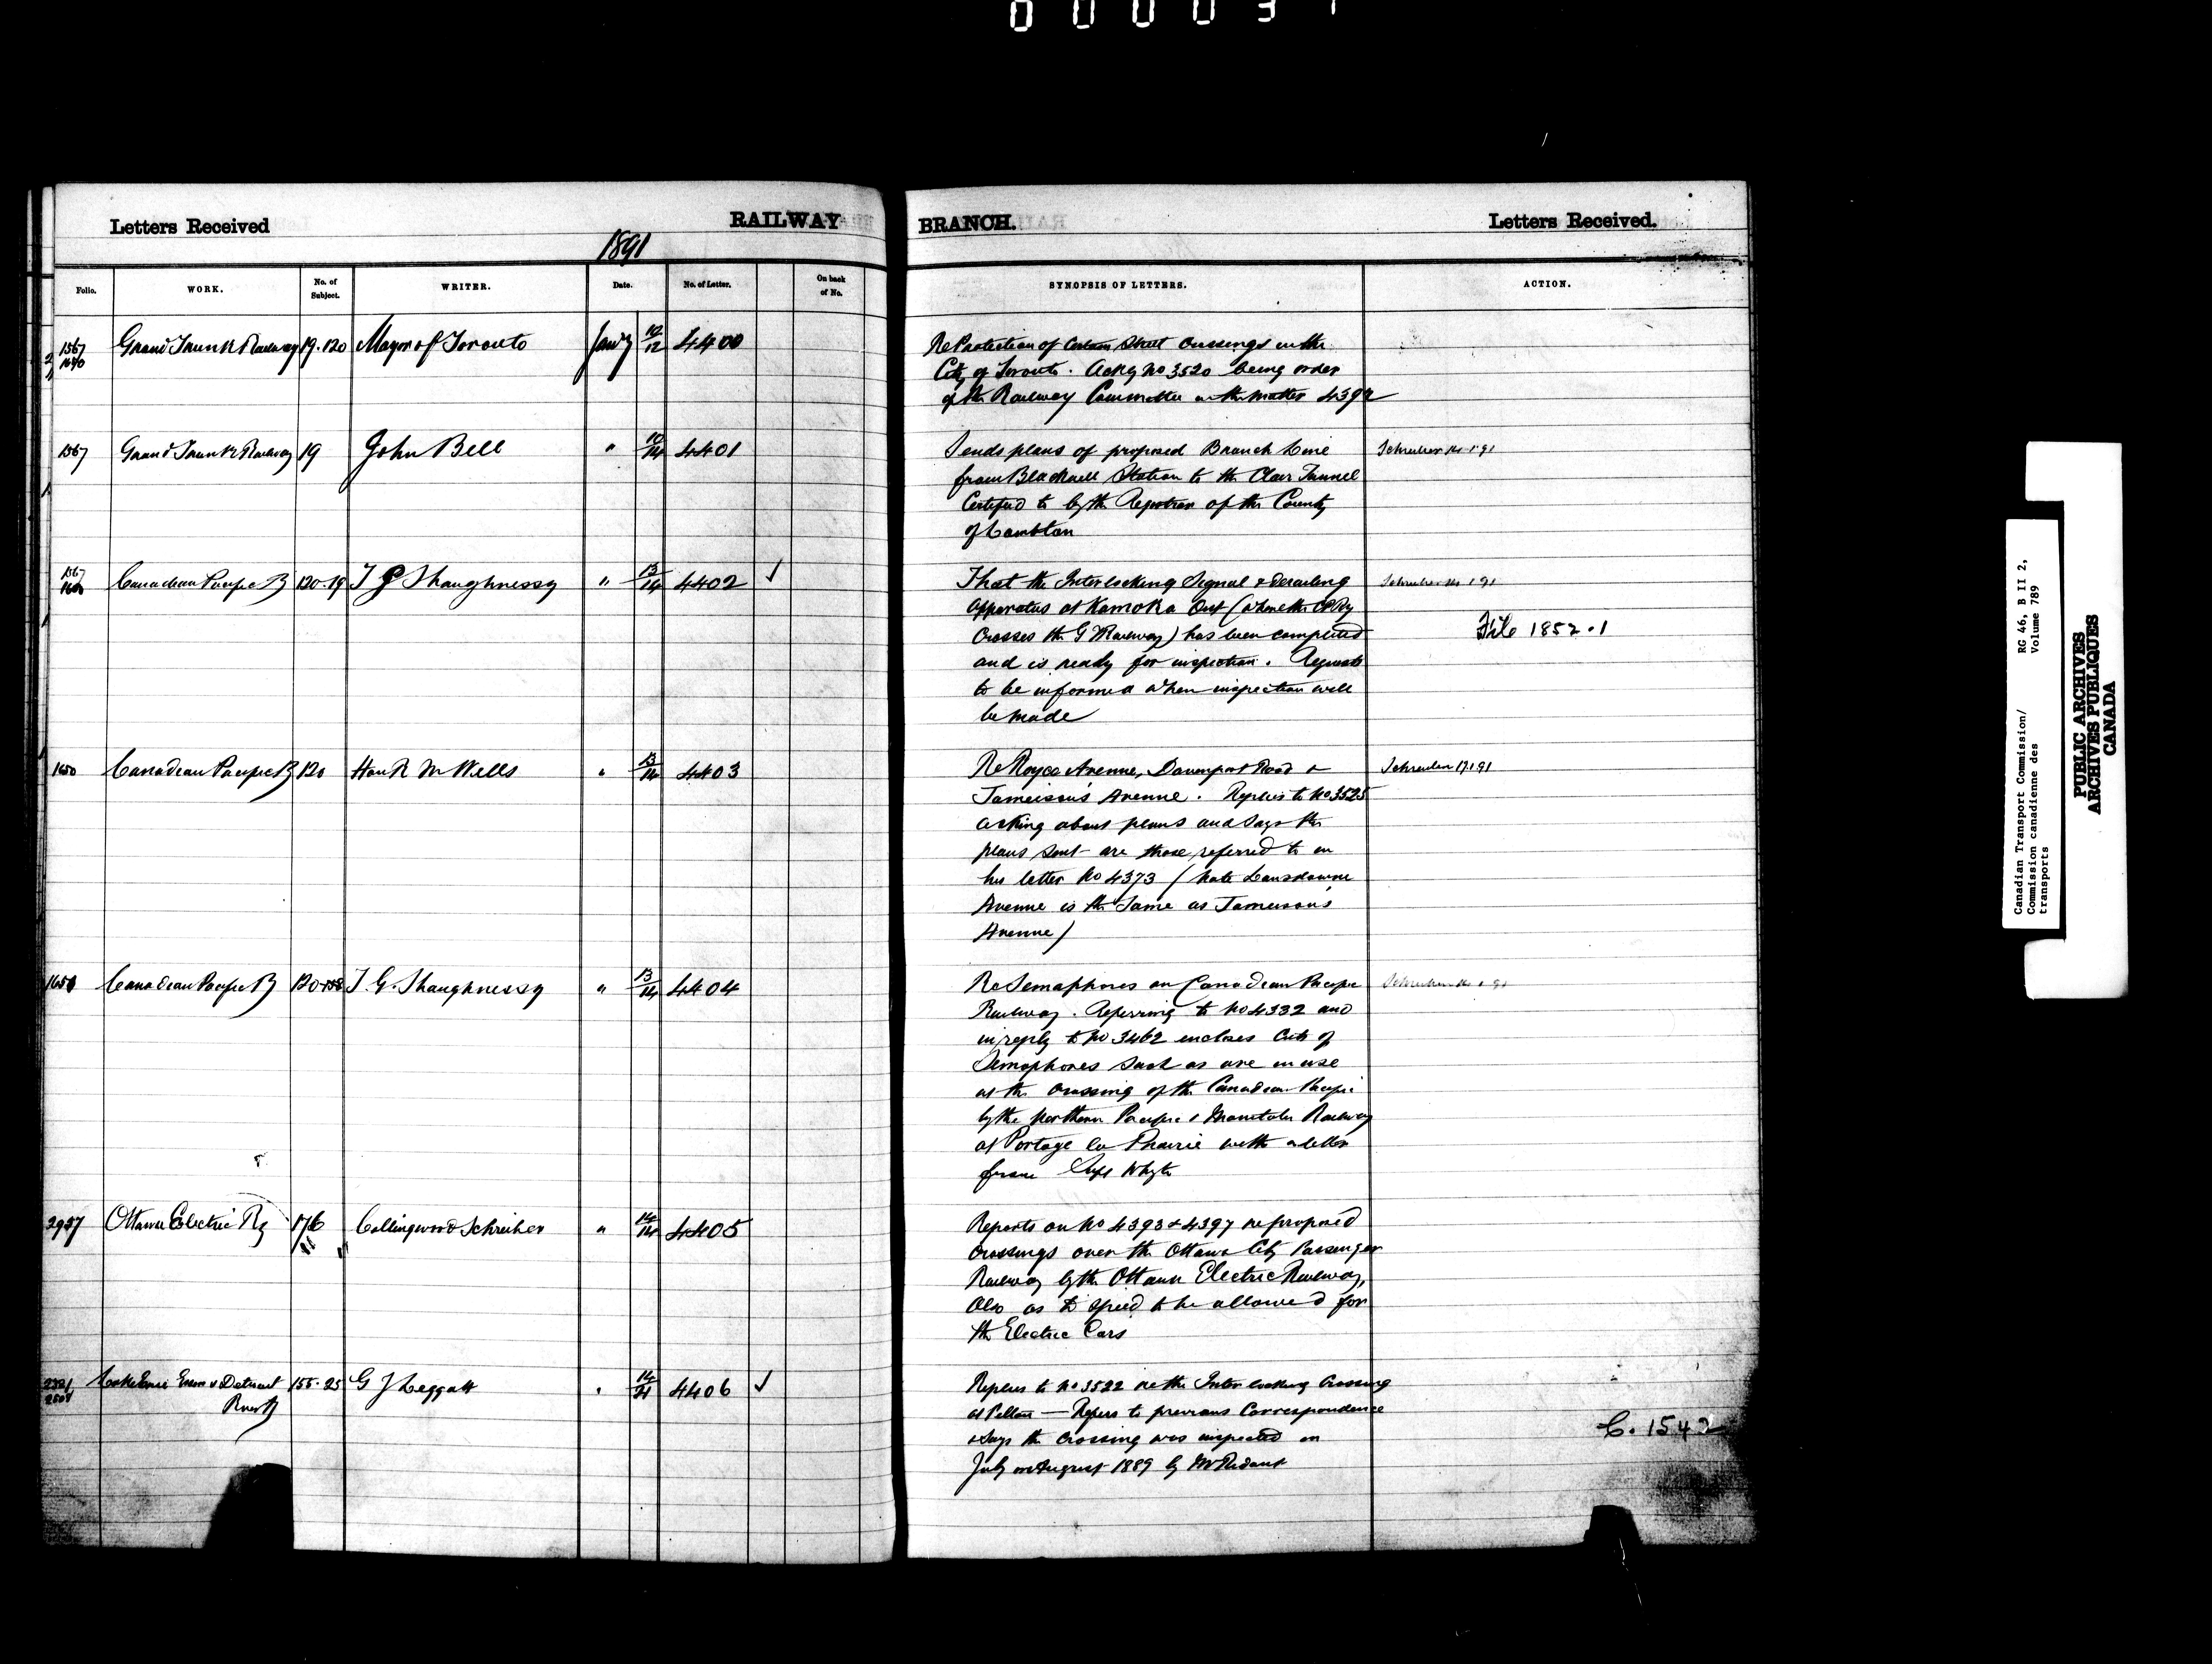 000031
Letters Received
RAILWAY
BRANCH.
Letters Received.
1891
Folio.
WORK.
No. of Subject.
WRITER.
Date.
No. of Letter.
On back of No.
SYNOPSIS OF LETTERS.
ACTION.
1567 Grand Trunk Railway 19.120 Mayor of Toronto Jany 10/12 4400
1640
Re Protection of Certain Street Crossings in the
City of Toronto. Ackg No 3520 being order
of the Railway Committee in the matter 4392
1567 Grand Trunk Railway 19 John Bell " 10/14 4401
Sends plans of proposed Branch Line Schreiber 14.1.91
from Blackwell Station to the Clair Tunnel
Certified to by the Registrar of the County
of Lambton
1567 Canadian Pacific Ry 120.19 T G Shaughnessy " 13/14 4402 ✓
That the Interlocking Signal & derailing Schreiber 14.1.91
apparatus at Komoka Ont (where the CPRy
Crosses the G T Railway) has been completed File 1852.1
and is ready for inspection. Requests
to be informed when inspection will
be made
1650 Canadian Pacific Ry 120 Hon R M Wells " 13/14 4403
Re Royce Avenue, Davenport Road & Schreiber 17.1.91
Jameison's Avenue. Replies to No 3525
asking about plans and says the
plans sent are those referred to in
his letter No 4373 (Note Lansdowne
Avenue is the same as Jameison's
Avenue)
1650 Canadian Pacific Ry 120.158 T. G. Shaughnessy " 13/14 4404
Re Semaphores on Canadian Pacific Schreiber 14.1.91
Railway. Referring to No 4332 and
in reply to No 3462 encloses Cuts of
Semaphores such as are in use
at the crossing of the Canadian Pacific
by the Northern Pacific & Manitoba Railway
at Portage la Prairie with a letter
from Supt Whyte
2937 Ottawa Electric Ry 176 Collingwood Schreiber " 14/14 4405
Reports on No 4393 & 4397 re proposed
crossings over the Ottawa City Passenger
Railway by the Ottawa Electric Railway,
also as to speed to be allowed for
the Electric Cars
Lake Erie Essex & Detroit 155.25 G J Leggatt " 14/21 4406 ✓
River Ry
Replies to No 3522 re the Interlocking Crossing
at Pelton — Refers to previous Correspondence
& Says the Crossing was inspected in C. 1542
July or August 1889 by Mr Ridout
Canadian Transport Commission/
Commission canadienne des
transports
RG 46, B II 2,
Volume 789
PUBLIC ARCHIVES
ARCHIVES PUBLIQUES
CANADA